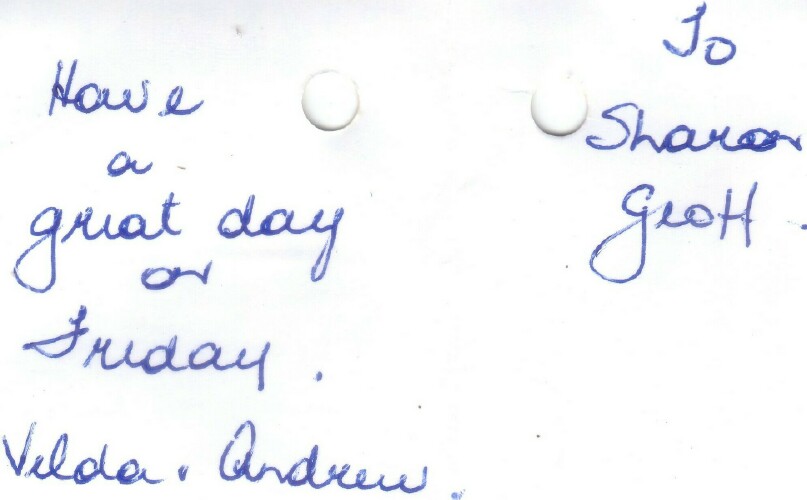 Have
a
great day
on
Friday.
Velda. Andrew.
To
Sharon
Geoff.